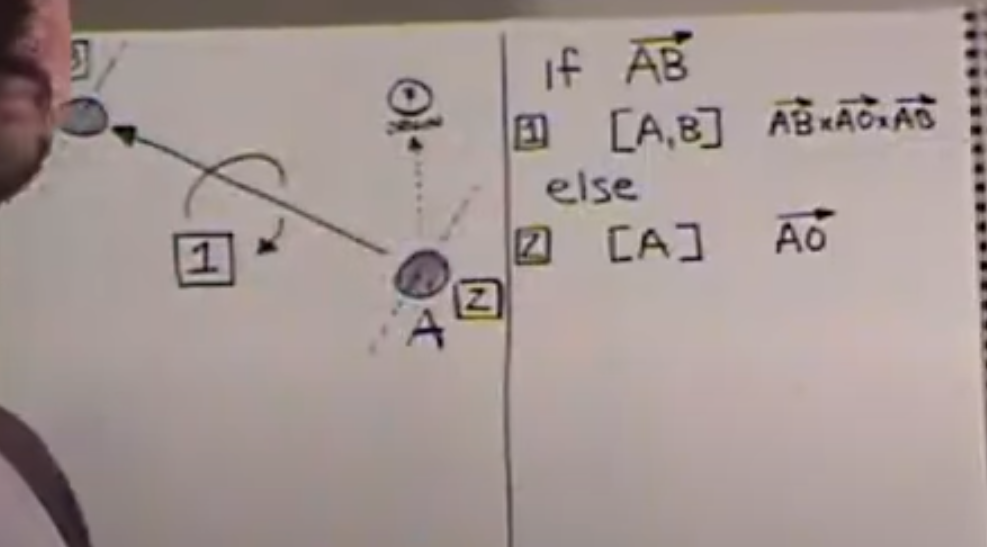 1
A
2
If AB
1 [A,B] AB×AO×AB
else
2 [A] AO